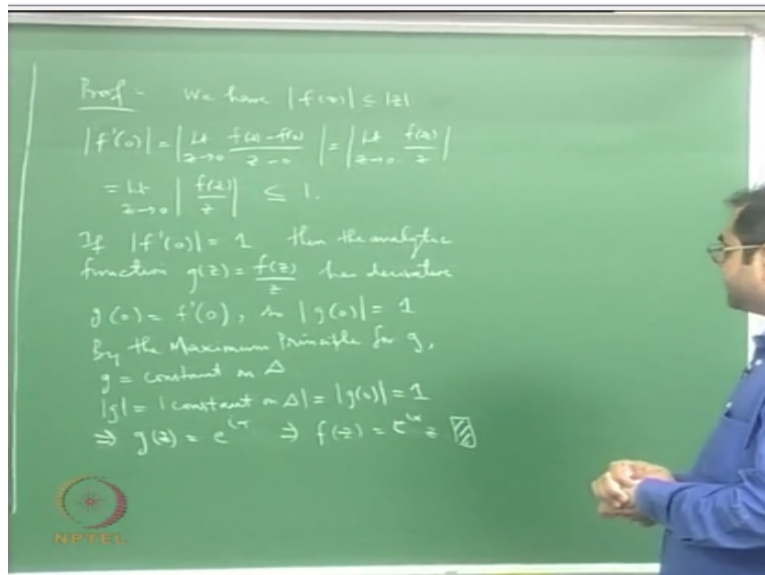 Proof - We have |f(z)| ≤ |z|
|f'(0)| = |Lt z→0 f(z)-f(0) / z-0| = |Lt z→0 f(z)/z|
= Lt z→0 |f(z)/z| ≤ 1.
If |f'(0)| = 1 then the analytic
function g(z) = f(z)/z has derivative
g(0) = f'(0), so |g(0)| = 1
By the Maximum Principle for g,
g = constant on Δ
|g| = |constant on Δ| = |g(0)| = 1
⇒ g(z) = e^{iα} ⇒ f(z) = e^{iα} z
NPTEL